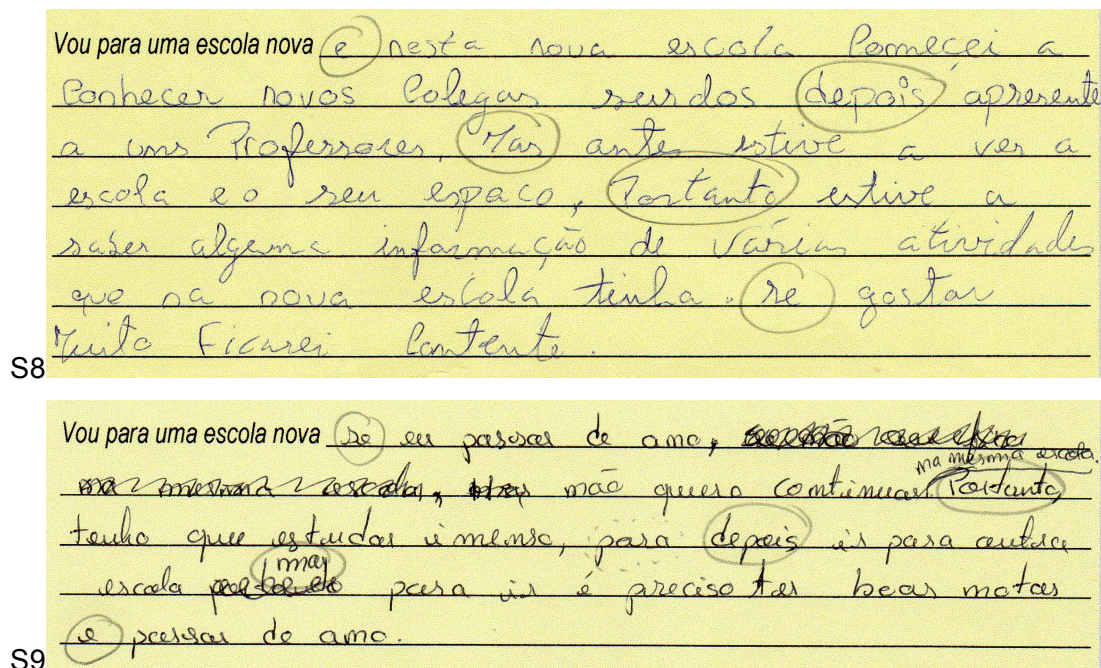 Vou para uma escola nova e nesta nova escola Começei a
Conhecer novos Colegas surdos depois apresente
a uns Professores, Mas antes estive a ver a
escola e o seu espaço, Portanto estive a
saber alguma informação de Várias atividades
que na nova escola tinha. se gostar
Muito Ficarei Contente.
S8
Vou para uma escola nova se eu passar de ano,
na mesma escola.
não quero continuar Portanto
tenho que estudar imenso, para depois ir para outra
mas
escola para ir é preciso ter boas notas
e passar de ano.
S9